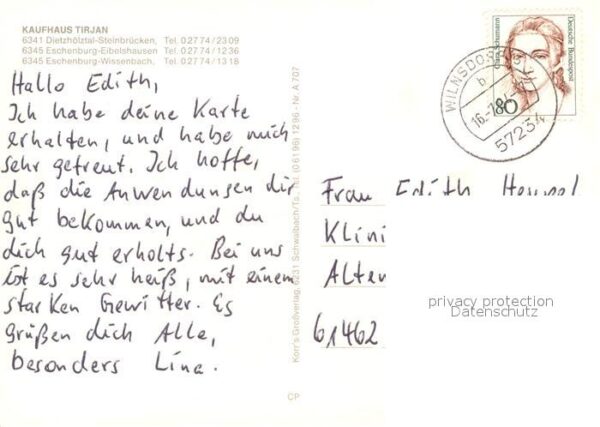 KAUFHAUS TIRJAN
6341 Dietzhölztal-Steinbrücken, Tel. 0 27 74 / 23 09
6345 Eschenburg-Eibelshausen Tel. 0 27 74 / 12 36
6345 Eschenburg-Wissenbach, Tel. 0 27 74 / 13 18
Hallo Edith,
Ich habe deine Karte
erhalten, und habe mich
sehr gefreut. Ich hoffe,
daß die Anwendungen dir
gut bekommen, und du
dich gut erholts. Bei uns
ist es sehr heiß, mit einem
starken Gewitter. Es
grüßen dich Alle,
besonders Lina.
Korr's Großverlag, 6231 Schwalbach/Ts., Tel. (0 61 96) 12 86 - Nr. A 707
CP
Clara Schumann
Deutsche Bundespost
80
WILNSDORF
b
16.-7.
57234
Frau Edith
Klini
Alten
61462
privacy protection
Datenschutz